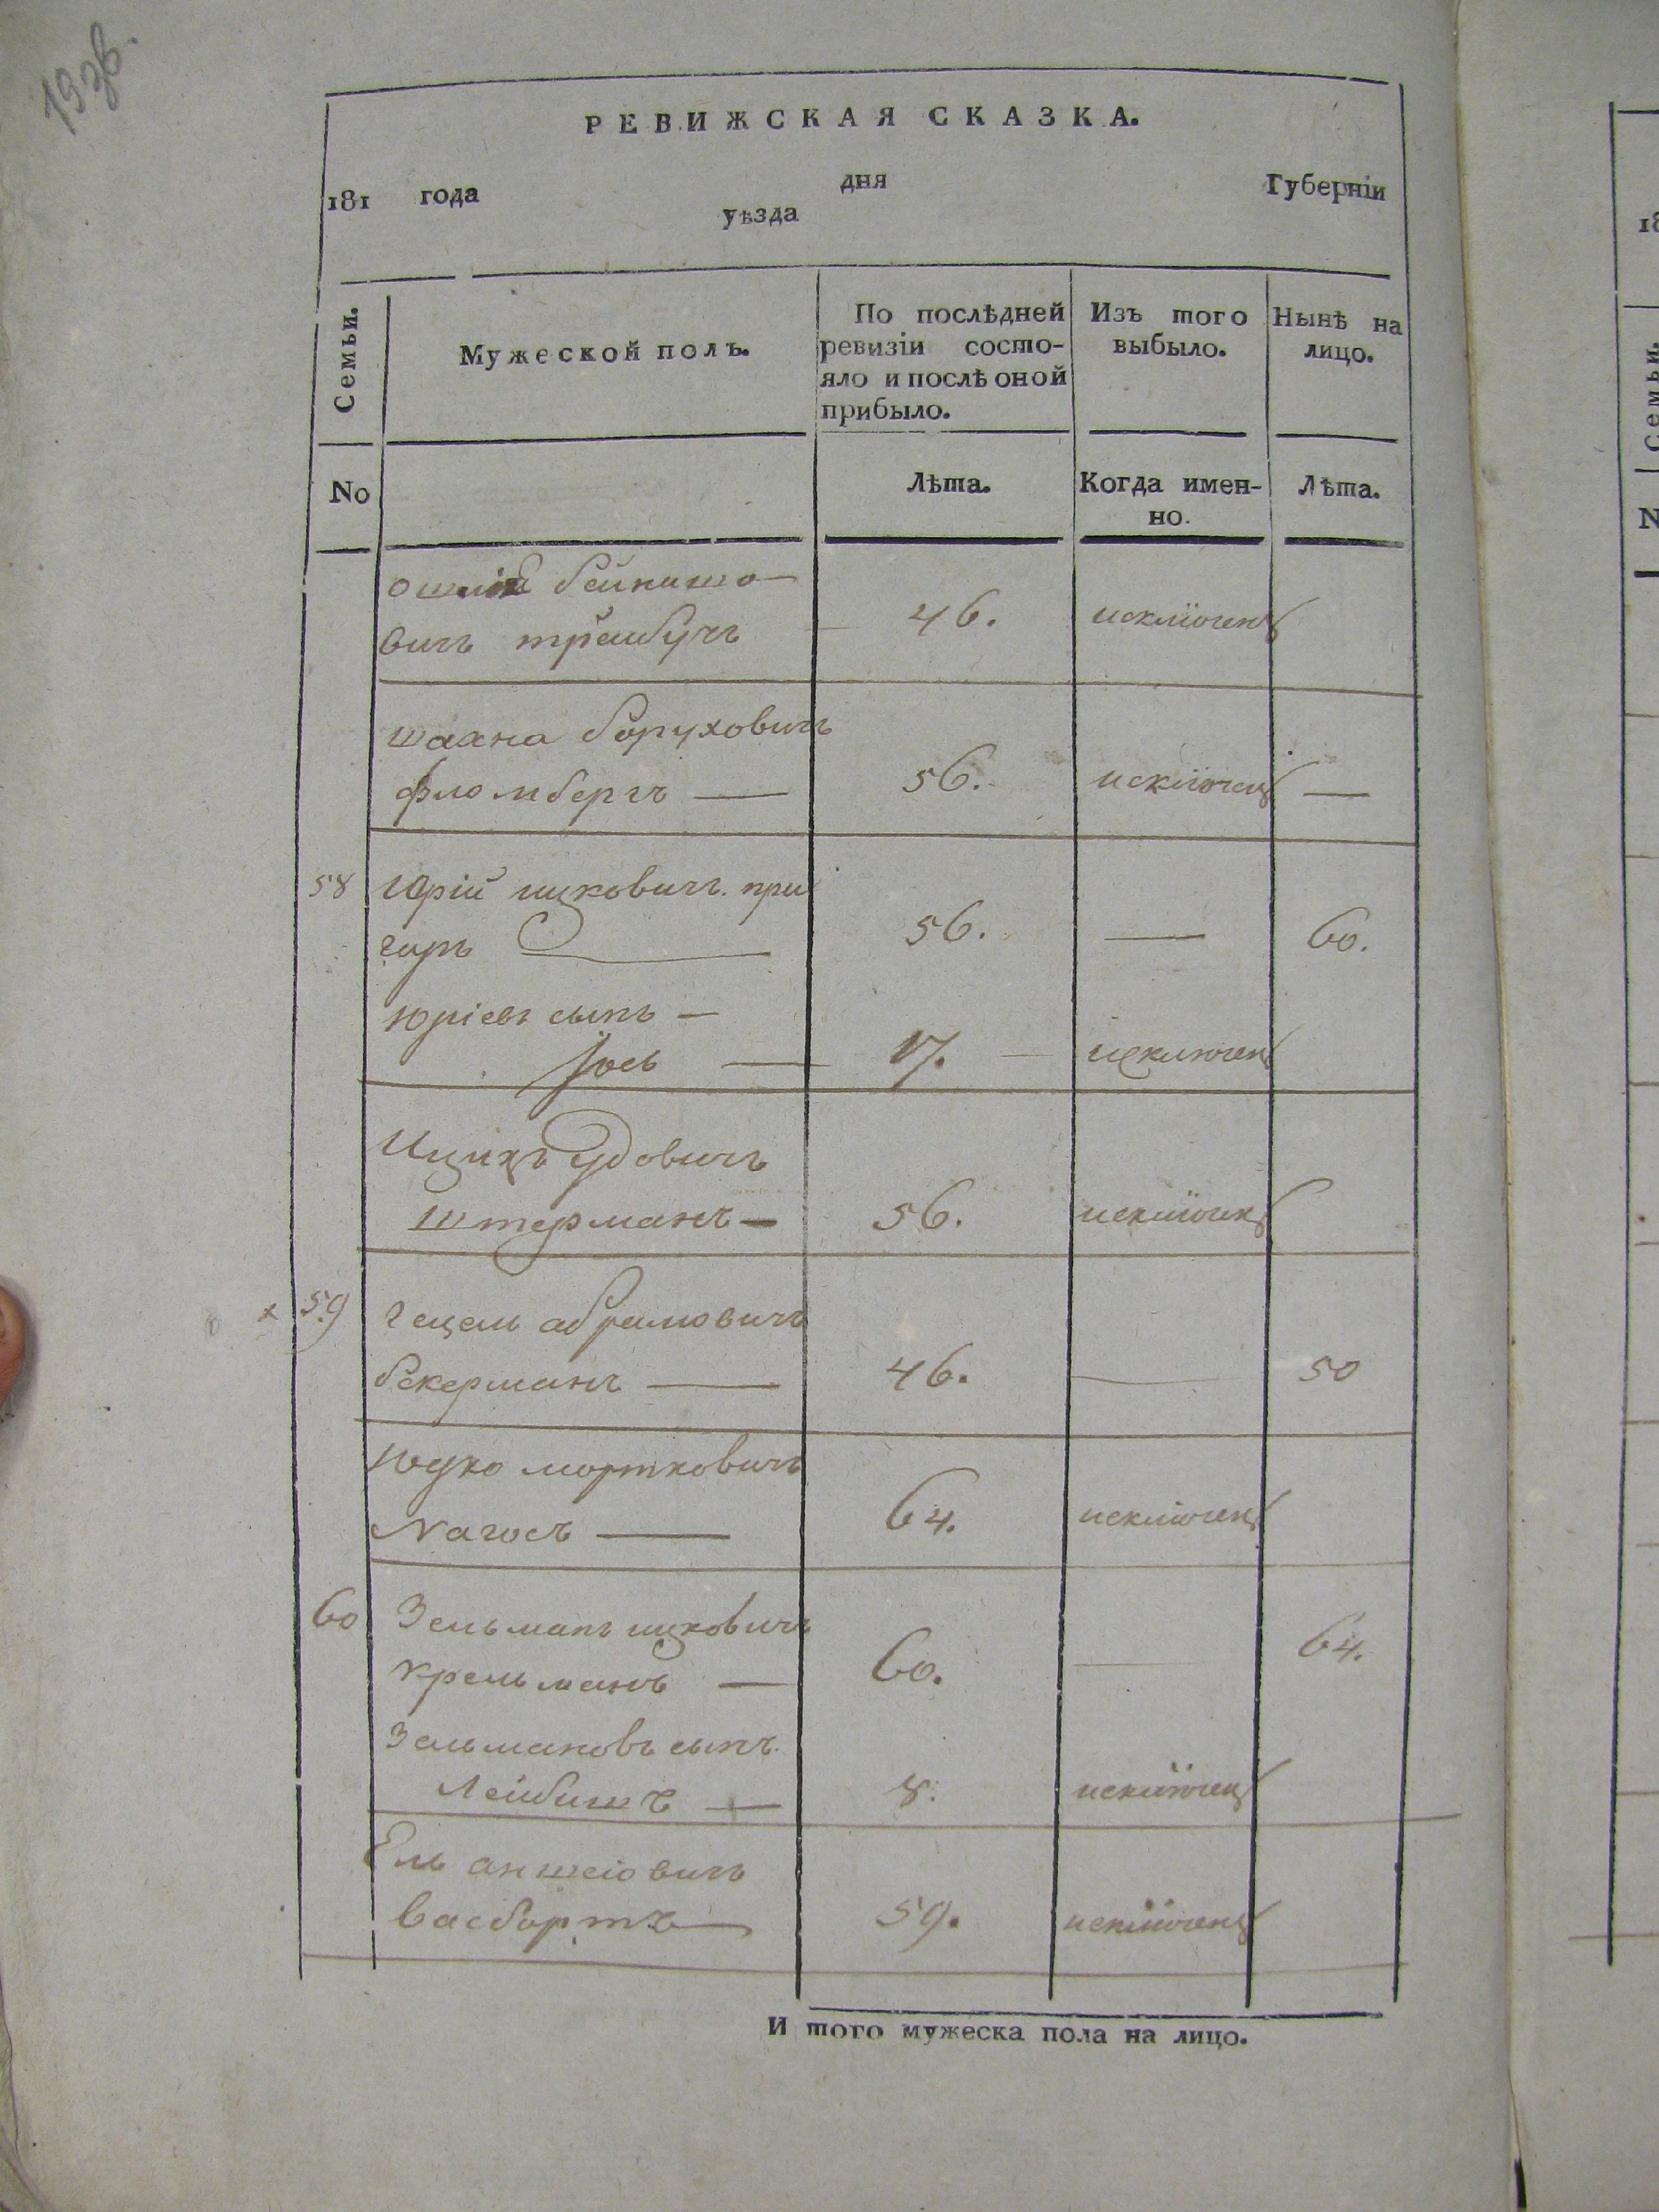 193об.
РЕВИЖСКАЯ СКАЗКА.
181 года дня Губерніи
уѣзда
Семьи. Мужеской полъ. По послѣдней ревизіи состояло и послѣ оной прибыло. Изъ того выбыло. Нынѣ на лицо.
No Лѣта. Когда именно. Лѣта.
бейнишо
вичъ трейбучъ 46. исключенъ
шахна боруховичъ
фломбергъ — 56. исключенъ —
58 Юрій ицковичъ при
гаръ — 56. — 60.
Юріевъ сынъ —
Іось — 17. — исключенъ
Ицикъ Удовичъ
Штерманъ — 56. исключенъ
х 59 гецель абрамовичъ
бекерманъ — 46. — 50
Юдко мортковичъ
Магосъ — 64. исключенъ
60 Зельманъ ицковичъ
крельманъ — 60. — 64.
Зельмановъ сынъ
Лейбишъ — 8. исключенъ
Ель аншеіовичъ
васбортъ — 59. исключенъ
И того мужеска пола на лицо.
18
Семьи.
N